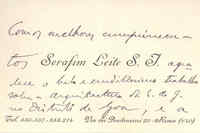 Com os melhores cumprimen-
tos Serafim Leite S. I. agra
dece o belo e eruditíssimo trabalho
sobre a arquitectura da C. de J.
no Distrito de Goa, e a
Tel 650.327-653.214 Via dei Penitenzieri 20 - Roma